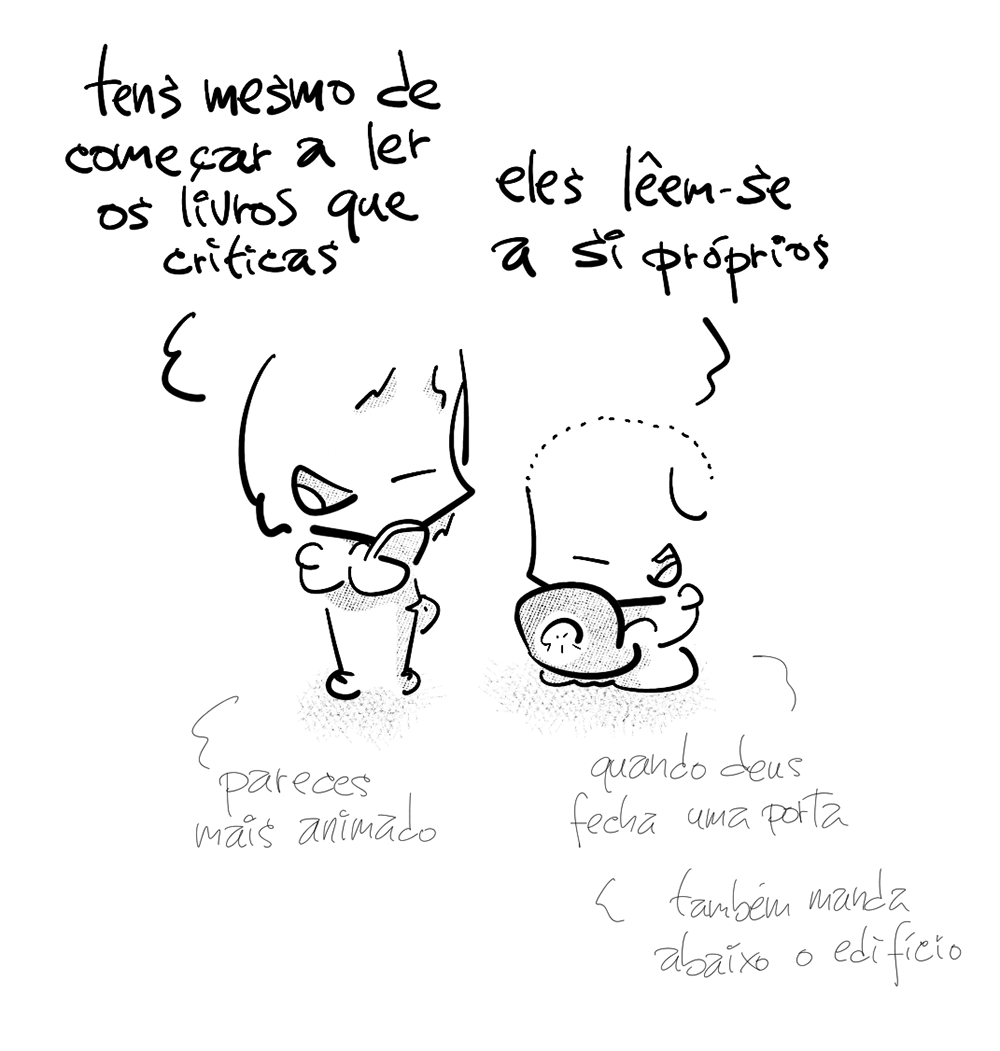 tens mesmo de
começar a ler
os livros que
criticas
eles lêem-se
a si próprios
pareces
mais animado
quando deus
fecha uma porta
também manda
abaixo o edifício